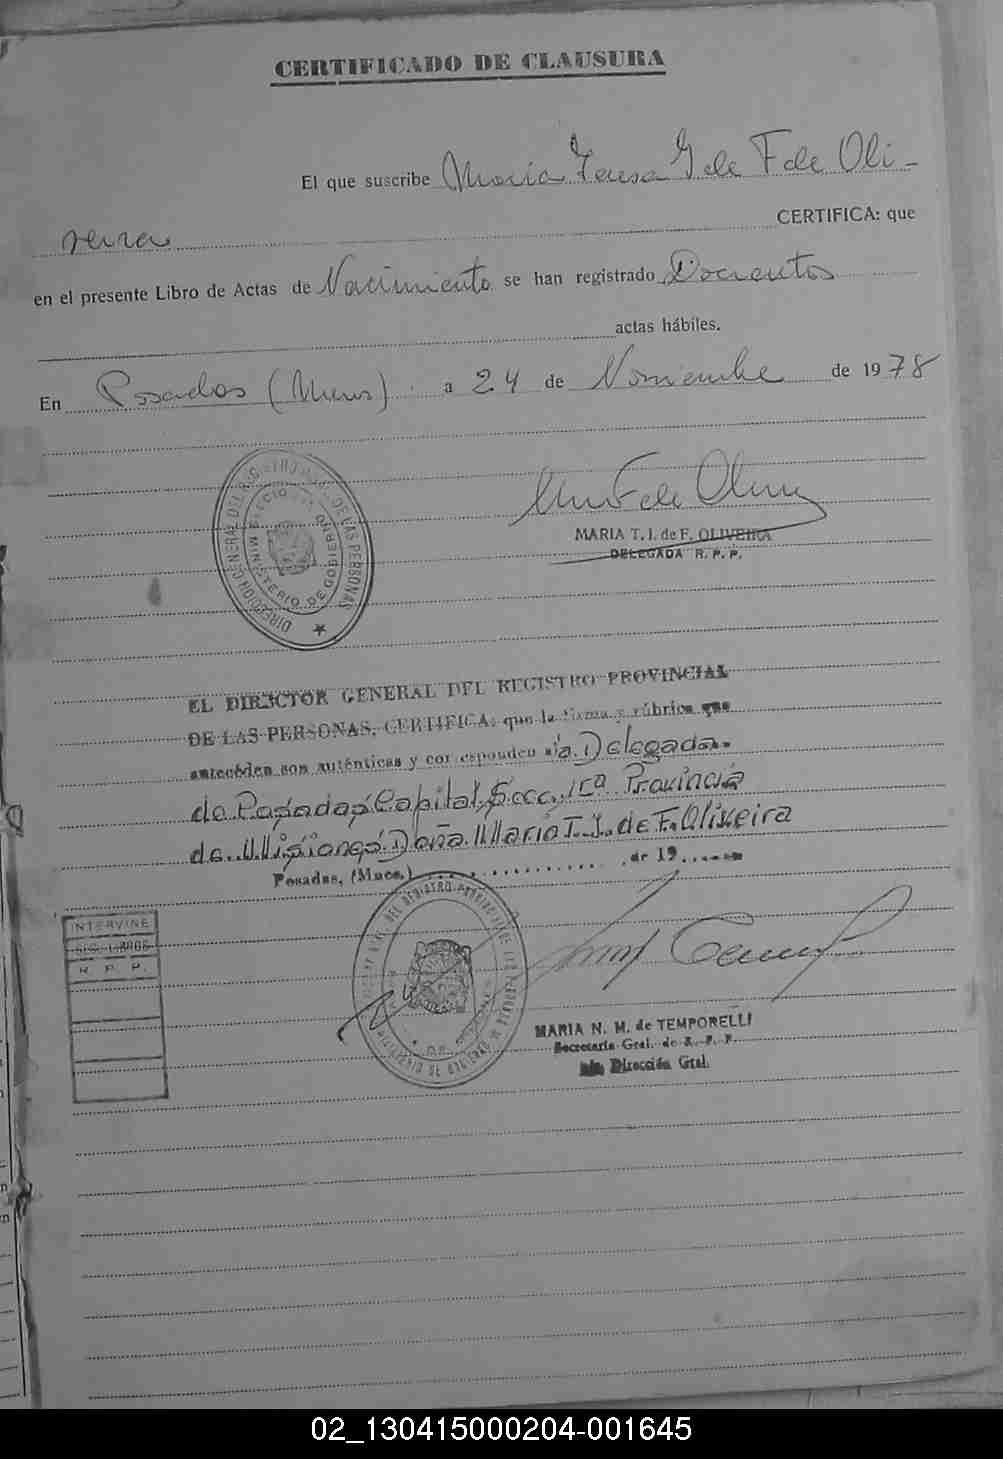 CERTIFICADO DE CLAUSURA
El que suscribe Maria Teresa I de F de Oli-
veira CERTIFICA: que
en el presente Libro de Actas de Nacimiento se han registrado Docientos
actas hábiles.
En Posadas (Mnes) a 24 de Noviembre de 1978
DIRECCION GENERAL DEL REGISTRO DE LAS PERSONAS
MINISTERIO DE GOBIERNO
MARIA T. I. de F. OLIVEIRA
DELEGADA R. P. P.
EL DIRECTOR GENERAL DEL REGISTRO PROVINCIAL
DE LAS PERSONAS, CERTIFICA: que la firma y rúbrica que
anteceden son auténticas y corresponden a la Delegada
de Posadas Capital, Secc. 1ra Provincia
de Misiones Doña Maria T. I. de F. Oliveira
Posadas, (Mnes.) de 19
INTERVINE
SEC. LIBROS
R. P. P.
MARIA N. M. de TEMPORELLI
Secretaria Gral. de R. P. P.
Dirección Gral.
02_130415000204-001645